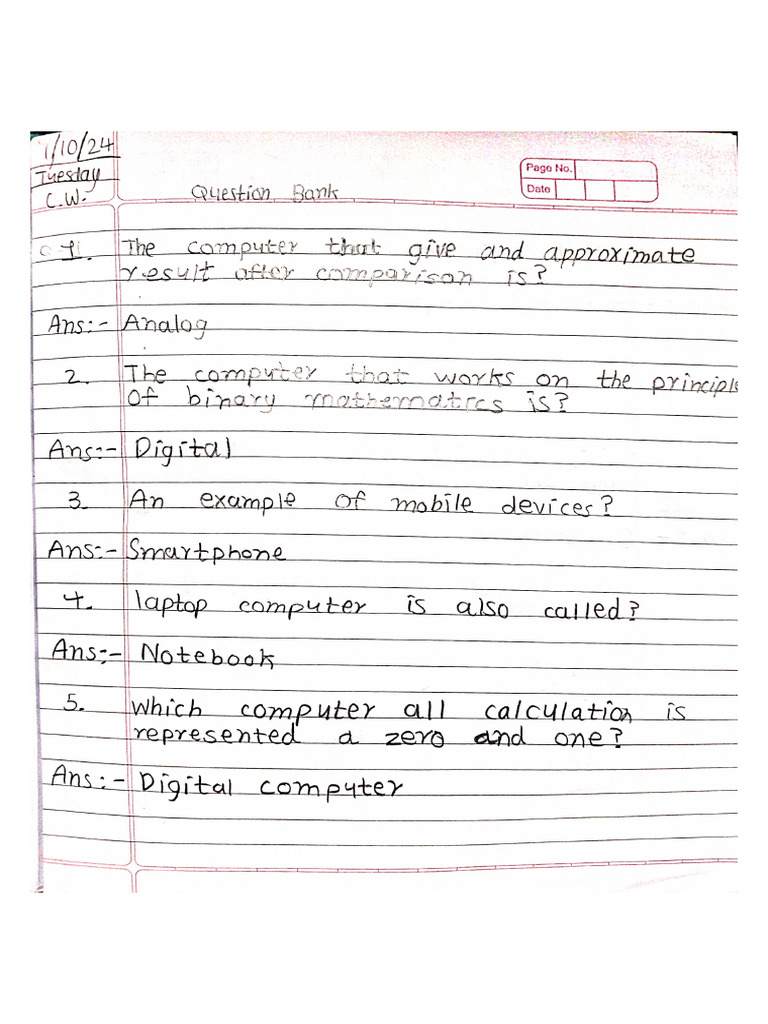 1/10/24
Tuesday
C.W.
Page No.
Date
Question Bank
1. The computer that give and approximate
result after comparison is?
Ans:- Analog
2. The computer that works on the principle
of binary mathematics is?
Ans:- Digital
3. An example of mobile devices?
Ans:- Smartphone
4. laptop computer is also called?
Ans:- Notebook
5. which computer all calculation is
represented a zero and one?
Ans:- Digital computer